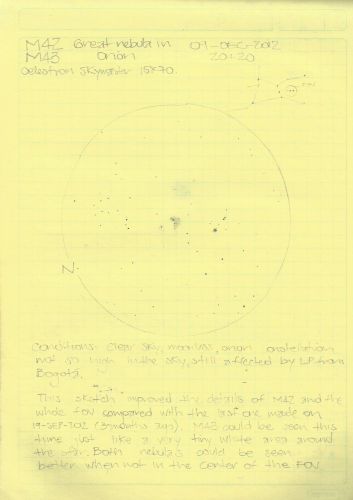 M42 Great nebula in 07-DEC-2012
M43 Orion 20:20
Celestron Skymaster 15x70.
FOV
N
Conditions: Clear sky, moonless, orion constellation
not so high in the sky, still affected by LP from
Bogotá.
This sketch improved the details of M42 and the
whole FOV compared with the last one made on
19-SEP-2012 (3 months ago). M43 could be seen this
time just like a very tiny white area around
the star. Both nebulas could be seen
better when not in the center of the FOV.